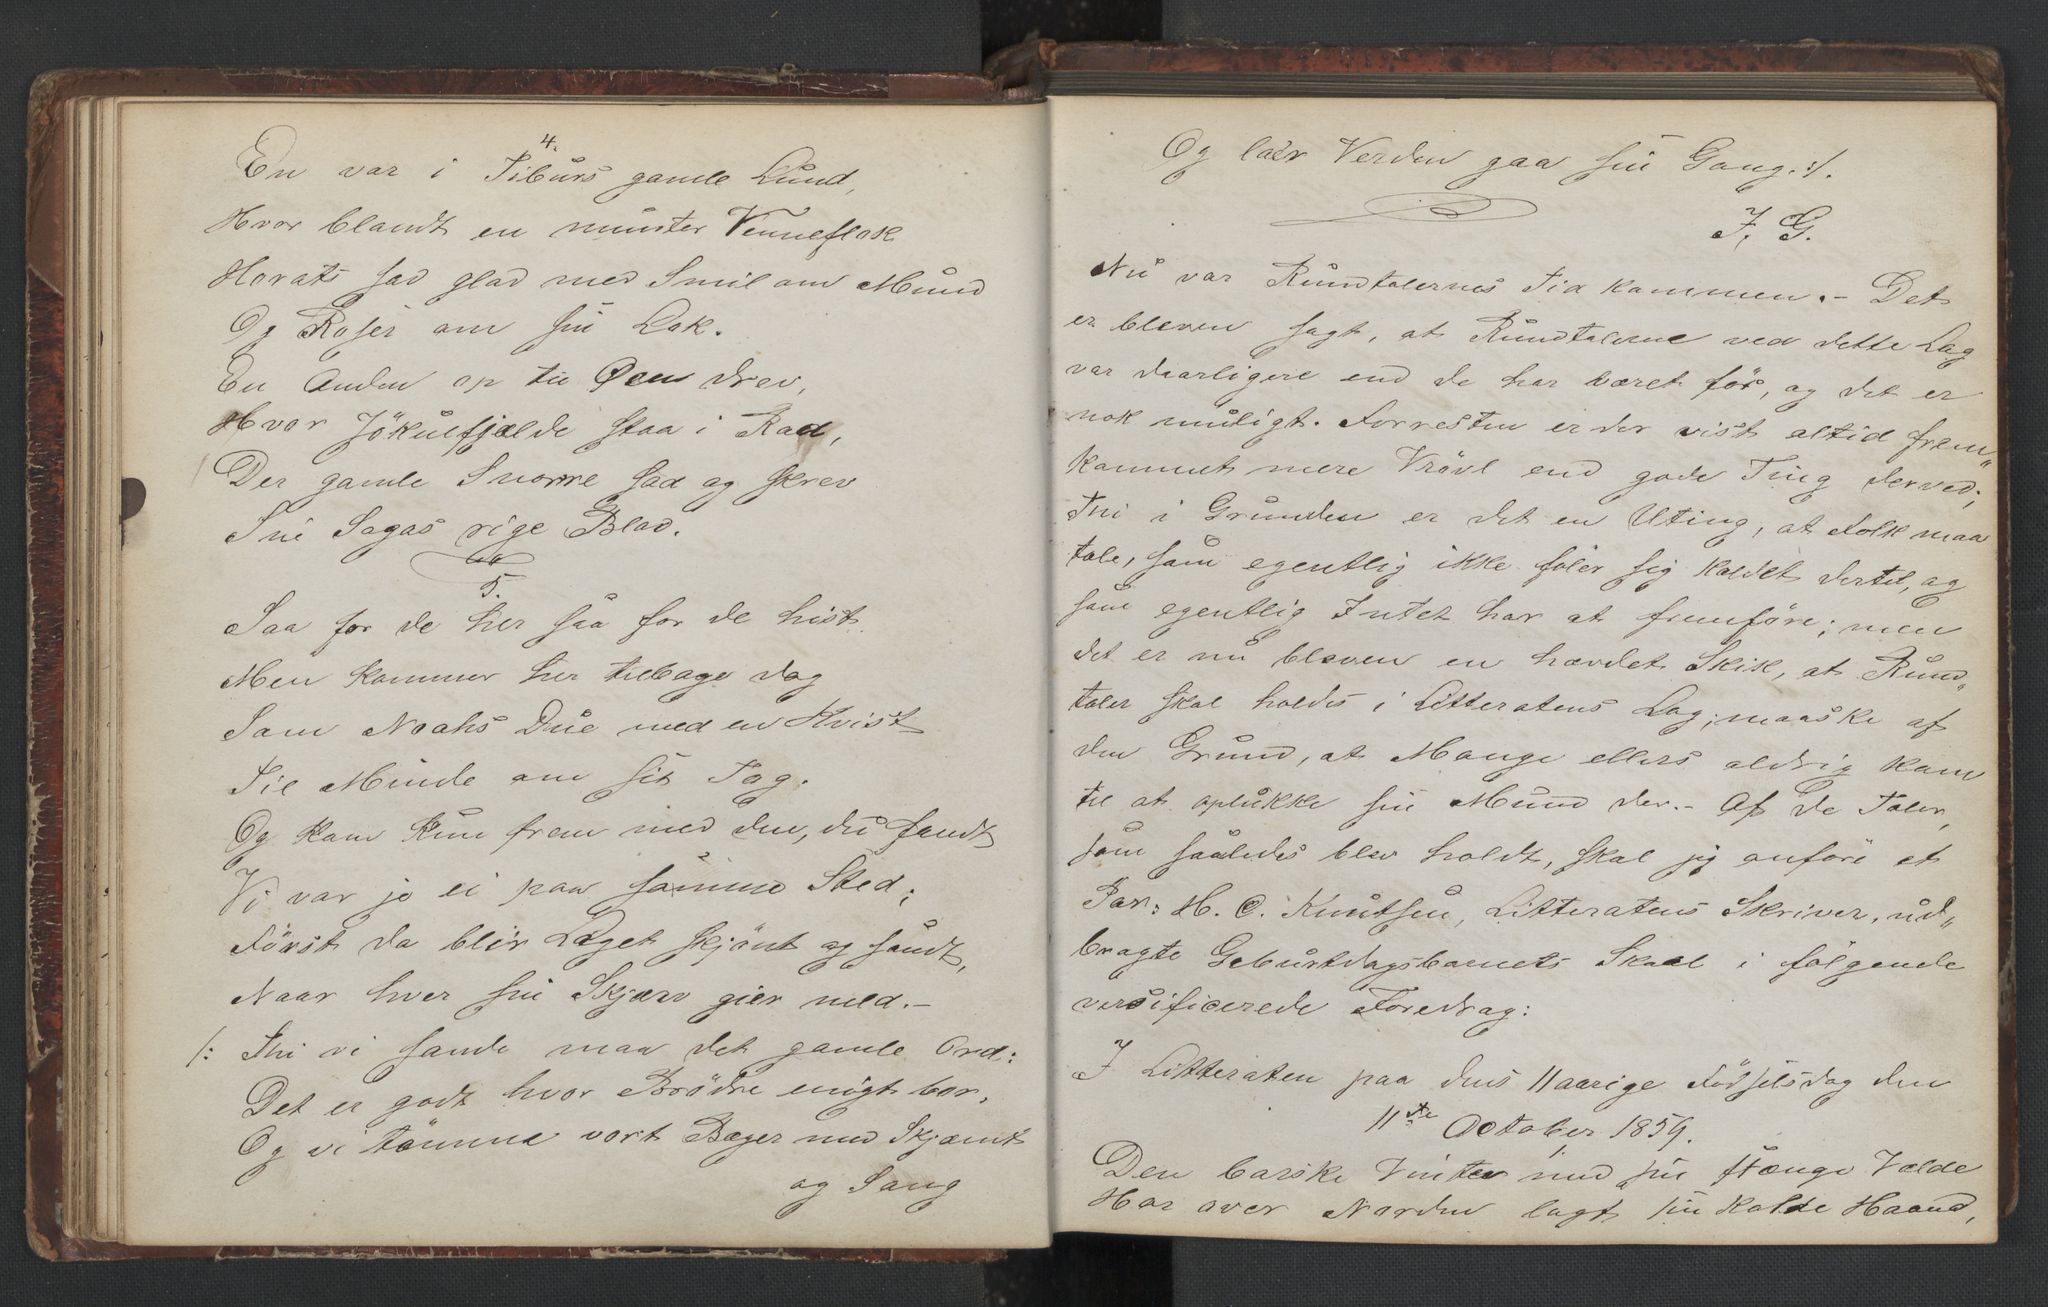 4.
En var i Tiburs gamle Lund,
Hvor blandt en munter Venneflok
Horats sad glad med Smil om Mund
Og Roser om sin Lok.
En Anden op til Øen drev,
Hvor Jökulfjelde staa i Rad,
Der gamle Snorre sad og skrev
Sine Sagas rige Blad.
5.
Saa for de her saa for de hist
Men kommer her tilbage dog
Som Noahs Due med en Kvist
Til Minde om sit Tog.
Og kom kun frem med den, du fandt
Vi var jo ei paa samme Sted;
Først da blir Laget skjönt og sandt,
Naar hver sin Skjærv gier med.-
/: Thi vi sande maa det gamle Ord:
Det er godt hvor Brödre enigt bor,
Og vi tömme vort Bæger med Skjæmt
og Sang
Og laer Verden gaa sin Gang :/.
J. G.
Nu var Rundtalernes Tid kommen. - Det
er bleven sagt, at Rundtalerne ved dette Lag
var daarligere end de har været för, og det er
nok muligt. Forresten er der vist altid frem„
kommet mere Vrövl end gode Ting derved;
Thi i Grunden er det en Uting, at Folk maa
tale, som egentlig ikke föler sig kaldet dertil, og
som egentlig Intet har at fremföre; men
det er nu bleven en hævdet Skik, at Rund„
taler skal holdes i Litteratens Lag, maaske af
den Grund, at Mange ellers aldrig kom
til at oplukke sin Mund der. - Af de Taler,
som saaledes blev holdt, skal jeg anföre et
Par: H. C. Knutsen, Litteratens Skriver, ud„
bragte Geburtdagsbarnets Skaal i fölgende
versificerede Foredrag:
I Litteraten paa dens 11 aarige Födselsdag den
11te October 1859.
Den barske Vinter med sin strænge Vælde
Har over Norden lagt sin kolde Haand,